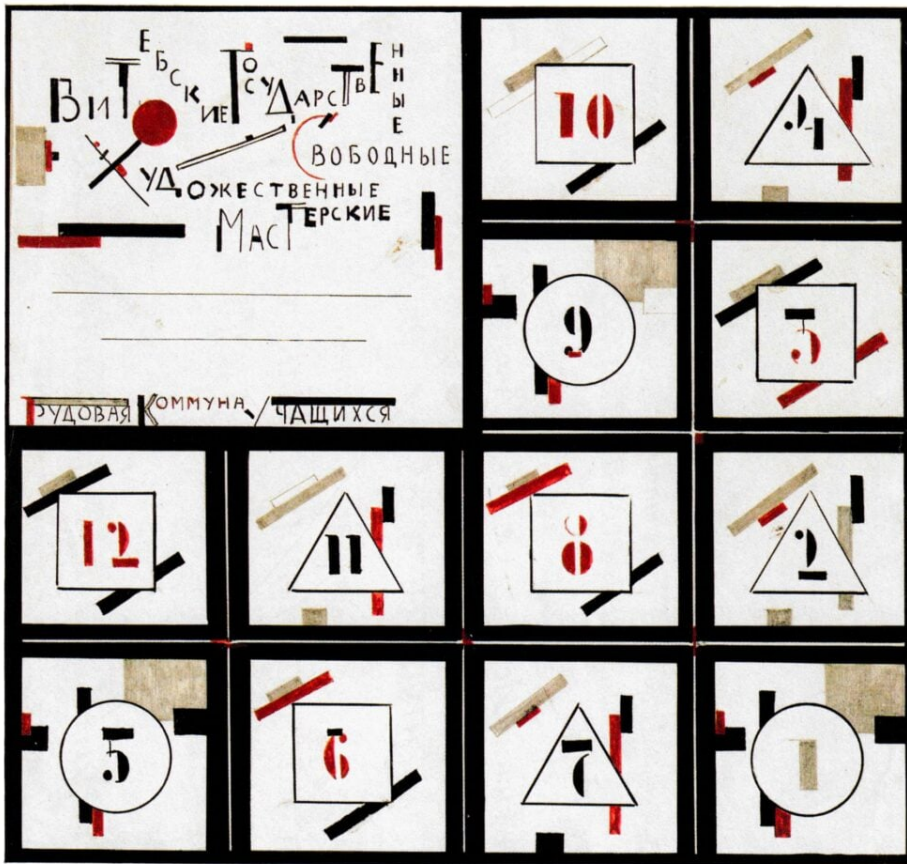 ВИТЕБСКИЕ ГОСУДАРСТВЕННЫЕ
СВОБОДНЫЕ
ХУДОЖЕСТВЕННЫЕ
МАСТЕРСКИЕ
ТРУДОВАЯ КОММУНА УЧАЩИХСЯ
10 4
9 3
12 11 8 2
5 6 7 1